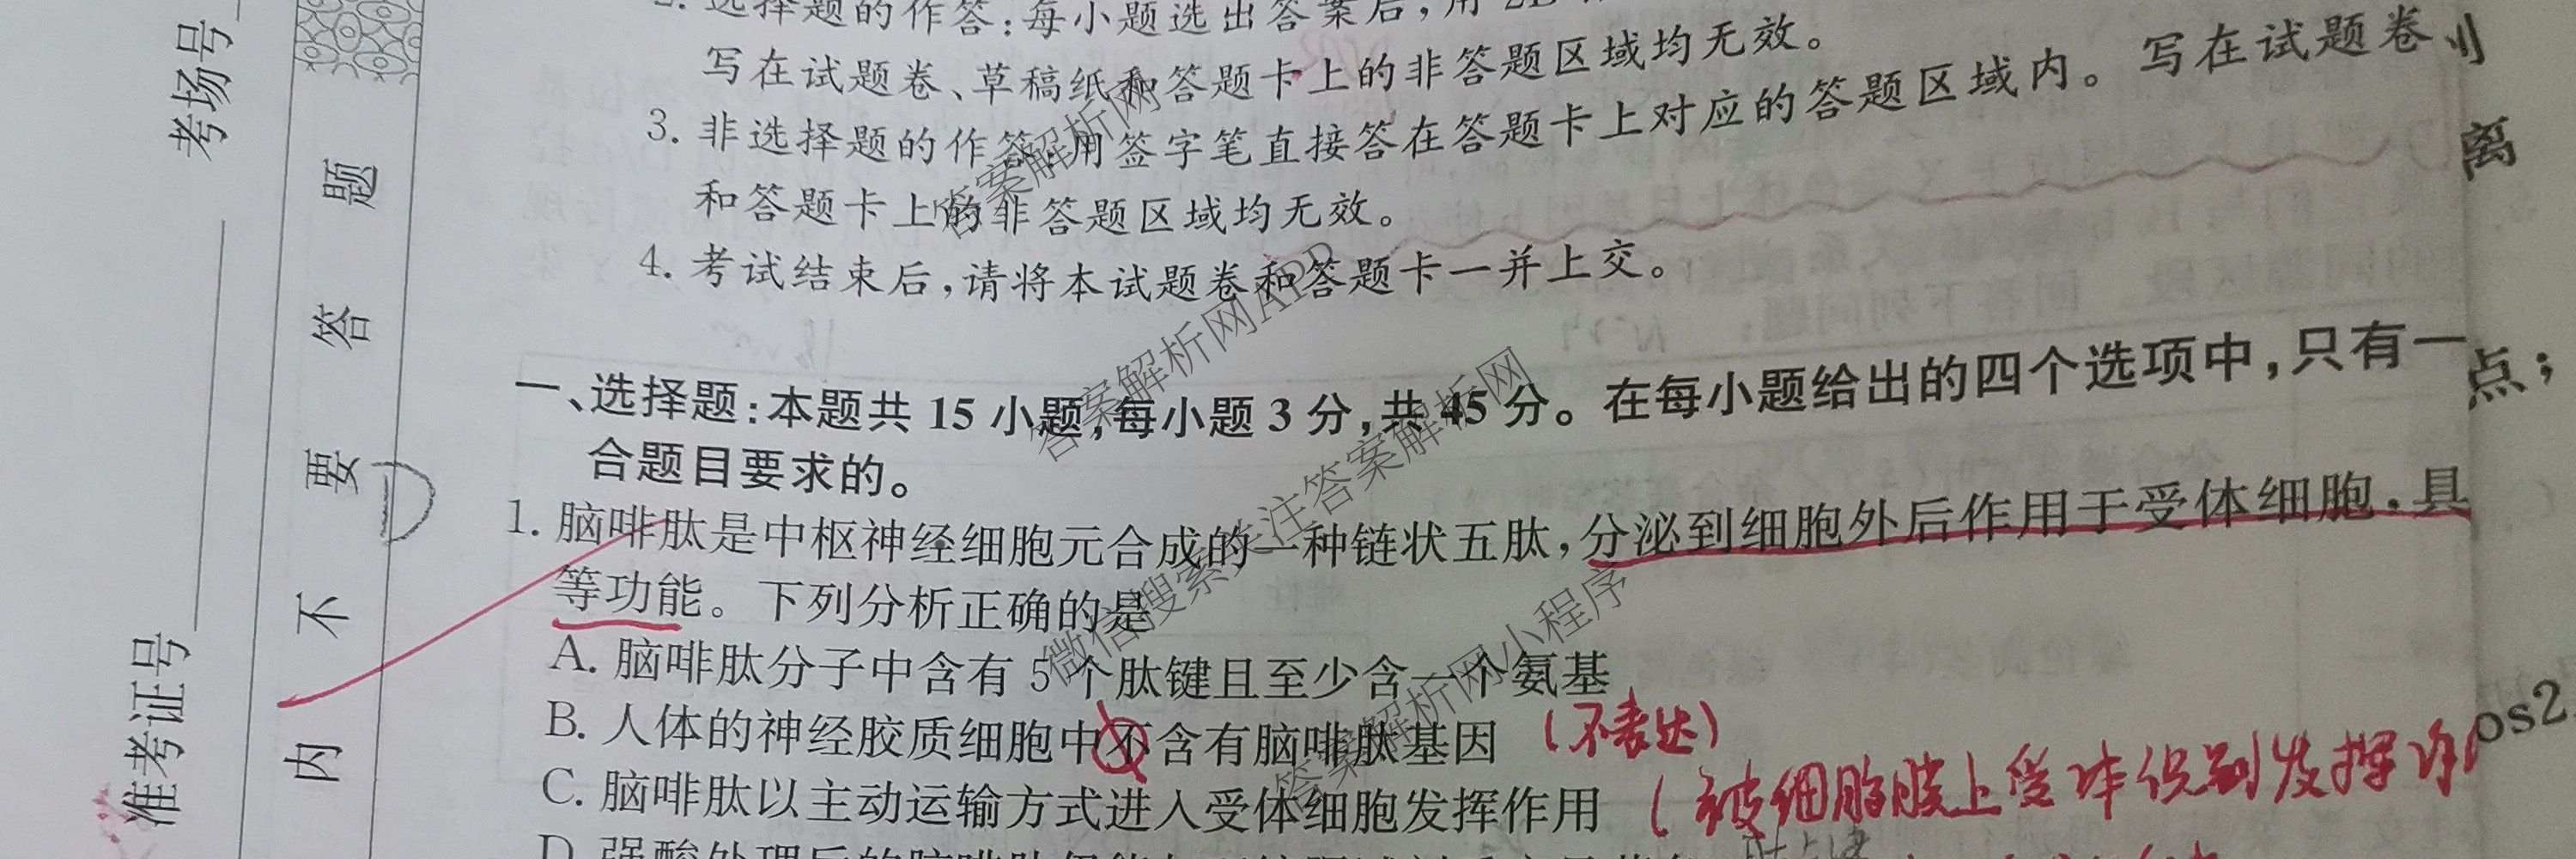 考场号
准考证号
内不要答题
选择题的作答:每小题选出答案后,用2B
写在试题卷、草稿纸和答题卡上的非答题区域均无效。
3. 非选择题的作答:用签字笔直接答在答题卡上对应的答题区域内。写在试题卷
和答题卡上的非答题区域均无效。
4. 考试结束后,请将本试题卷和答题卡一并上交。
一、选择题:本题共 15 小题,每小题 3 分,共 45 分。在每小题给出的四个选项中,只有一
合题目要求的。
1. 脑啡肽是中枢神经细胞元合成的一种链状五肽,分泌到细胞外后作用于受体细胞,具
等功能。下列分析正确的是
A. 脑啡肽分子中含有 5 个肽键且至少含一个氨基
B. 人体的神经胶质细胞中不含有脑啡肽基因 (不表达)
C. 脑啡肽以主动运输方式进入受体细胞发挥作用 (被细胞膜上受体识别发挥作
离
点;
os2
答案解析网
答案解析网APP
微信搜索关注答案解析网
答案解析网小程序